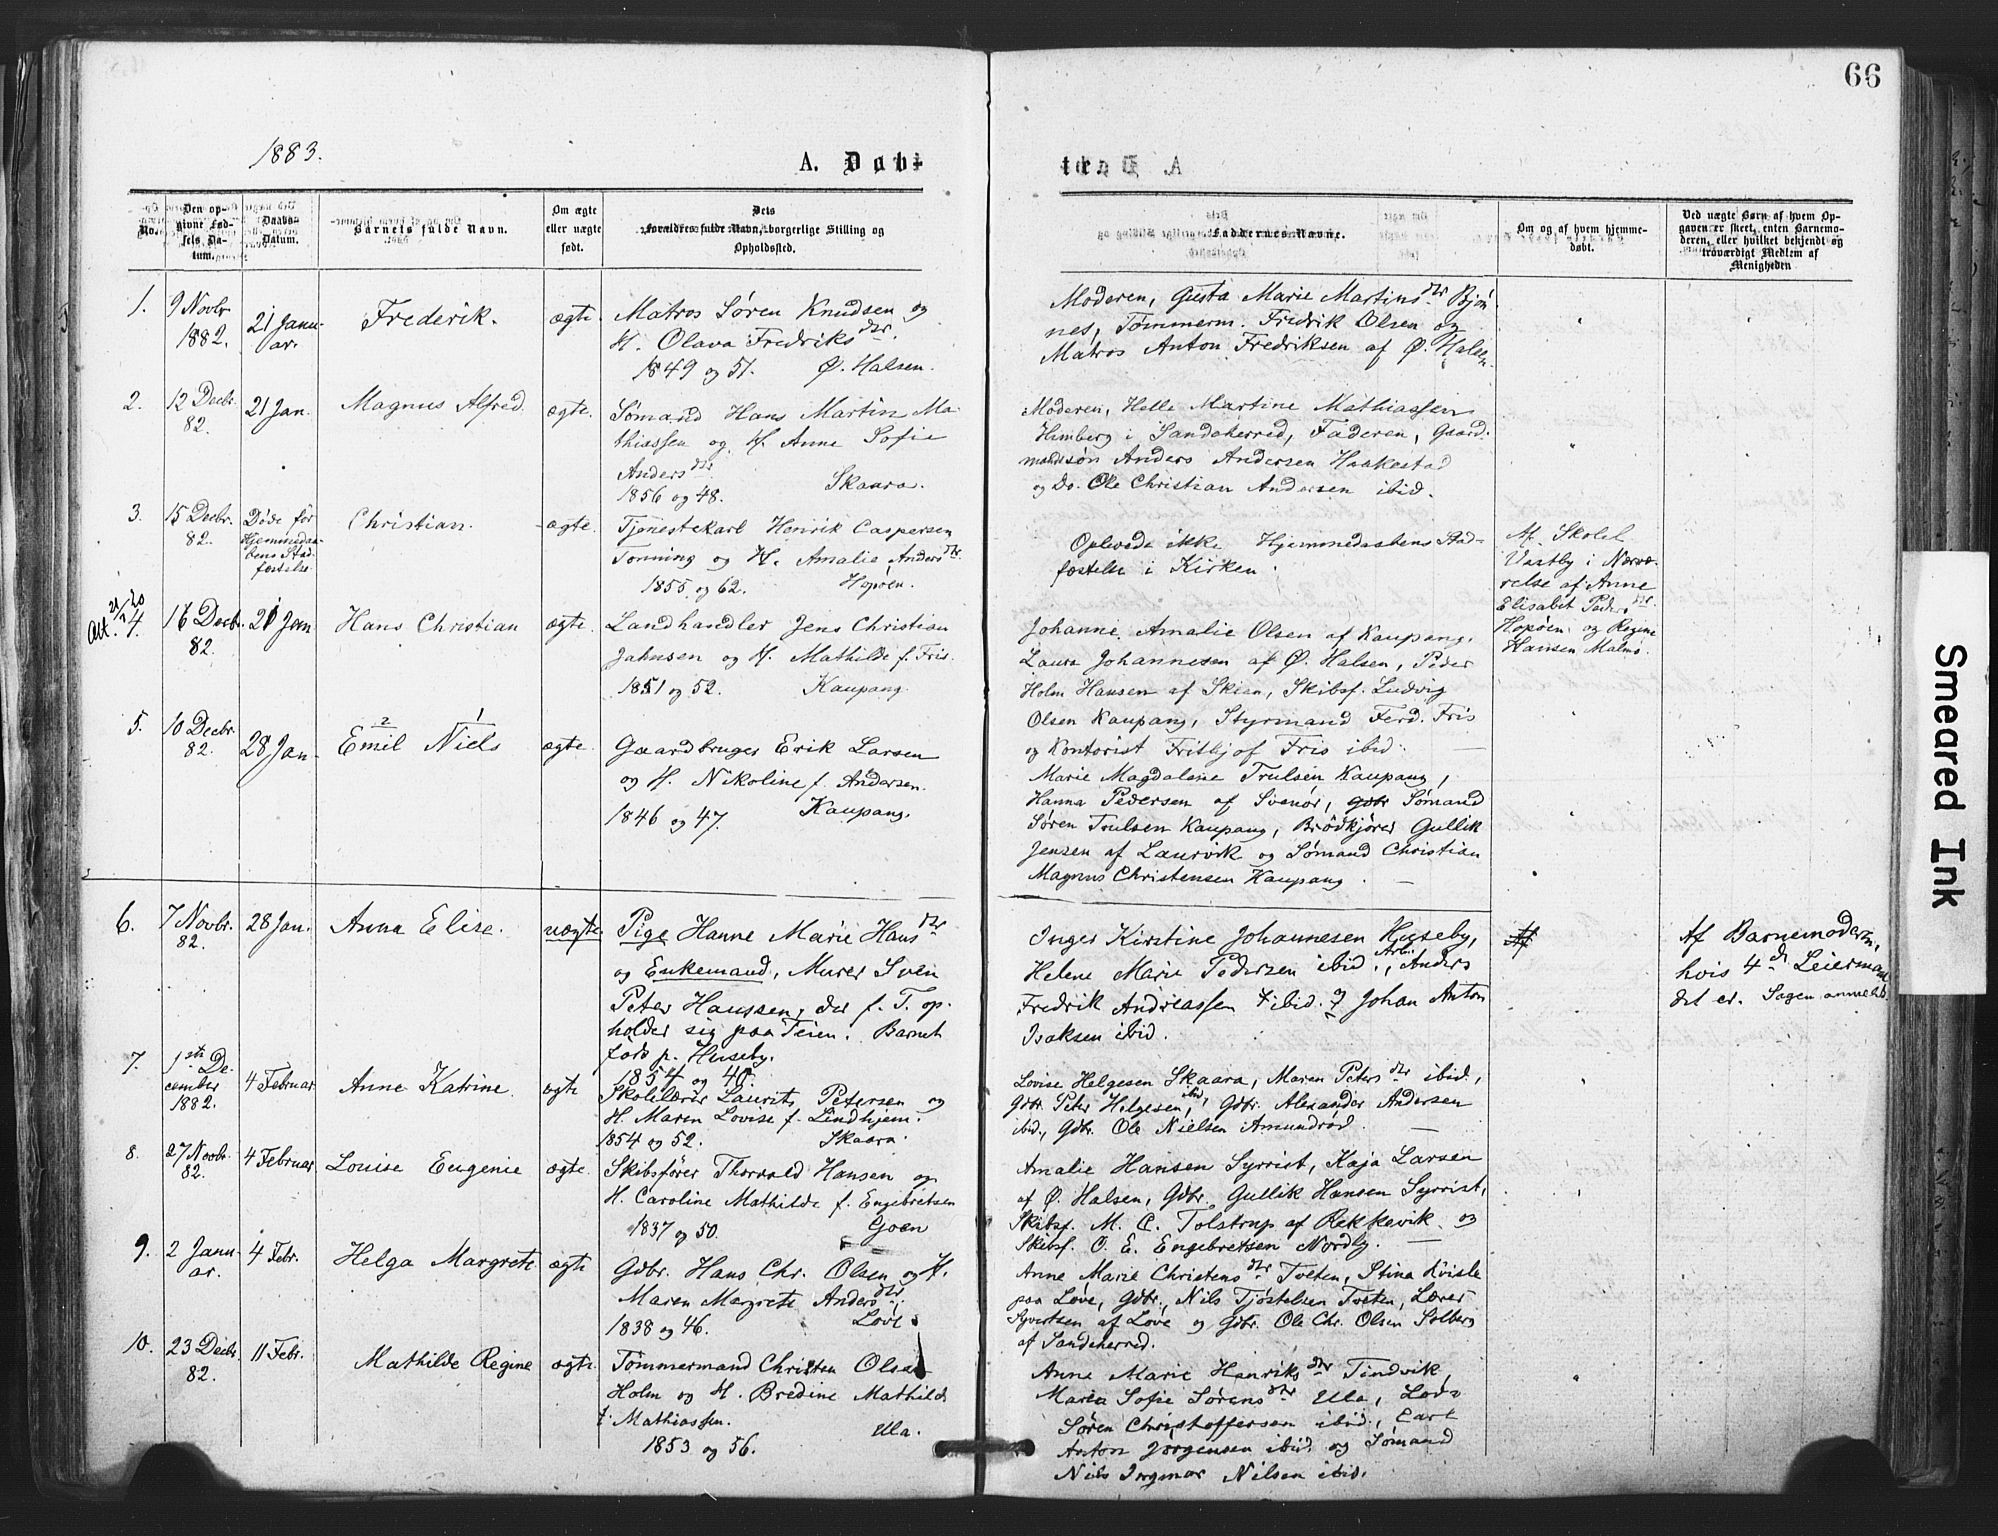 66
1883.
A. Døbte.
No.
Den opgivne Fødsels Datum.
Daabs Datum.
Barnets fulde Navn.
Om ægte eller uægte født.
Dets Forældres fulde Navn, borgerlige Stilling og Opholdssted.
Faddernes Navne.
Om og af hvem hjemmedøbt.
Ved uægte Børn af hvem Opgaven er skeet, enten Barnemoderen, eller hvilket bekjendt og troværdigt Medlem af Menigheden
1.
9 Novbr
1882.
21 Januar.
Frederik.
ægte.
Matros Søren Knudsen og
H. Olava Fredriksdtr.
1849 og 51. Ø. Halsen.
Moderen, Gusta Marie Martinsdtr Bjønnes,
Tømmerm. Fredrik Olsen og
Matros Anton Fredriksen af Ø. Halsen.
2.
12 Decbr.
82.
21 Jan.
Magnus Alfred
ægte.
Sømand Hans Martin Ma-
thiassen og H. Anne Sofie
Andersdtr
1856 og 48. Skaara.
Moderen, Helle Martine Mathiassen
Himberg i Sandeherred, Faderen, Gaard-
mandssøn Anders Andersen Haakestad
og Do. Ole Christian Andersen ibid.
3.
15 Decbr.
82.
Døde før
Hjemmedaa-
bens Stad-
fæstelse
Christian.
ægte.
Tjenestekarl Henrik Caspersen
Tonning og H. Amalie Andersdtr.
1855 og 62. Hopøen.
Oplevede ikke Hjemmedaabens Stad-
fæstelse i Kirken.
Af Skolel.
Vaatby i Nærvæ-
relse af Anne
Elisabet Pedersdtr.
Hopøen og Regine
Hansen Malmø.
Att. 21/2 20
4.
16 Decbr.
82.
21 Jan
Hans Christian
ægte.
Landhandler Jens Christian
Jahnsen og H. Mathilde f. Fris.
1851 og 52. Kaupang.
Johanne Amalie Olsen af Kaupang,
Laura Johannesen af Ø. Halsen, Peder
Holm Hansen af Skien, Skibsf. Ludvig
Olsen Kaupang, Styrmand Ferd. Fris
og Kontorist Fritbjof Fris ibid. —
5.
10 Decbr.
82.
28 Jan
2 1
Emil Niels
ægte.
Gaardbruger Erik Larsen
og H. Nikoline f. Andersen.
1846 og 47. Kaupang.
Marie Magdalene Trulsen Kaupang,
Hanna Pedersen af Svenør, Gdbr Sømand
Søren Trulsen Kaupang, Brødkjører Gullik
Jensen af Laurvik og Sømand Christian
Magnus Christensen Kaupang. —
6.
7 Novbr.
82.
28 Jan.
Anna Elise.
uægte.
Pige Hanne Marie Hansdtr
og Enkemand, Murer Sven
Peter Hanssen, der f. T. op-
holder sig paa Teien. Barnet
født p. Huseby.
1854 og 40.
Inger Kirstine Johannesen Huseby,
Helene Marie Pedersen ibid., Arb. Anders
Fredrik Andreassen ibid. og Johan Anton
Isaksen ibid.
Af
Af Barnemoderen,
hvis 4de Leiermaal
det er. Sagen anmeldt.
7.
1ste De-
cember
1882.
4 Februar
Anne Katrine.
ægte
Skolelærer Laurits Petersen og
H. Maren Lovise f. Lindhjem.
1854 og 52. Skaara.
Lovise Helgesen Skaara, Maren Petersdtr ibid.,
Gdbr. Peter Helgesen ibid, Gdbr. Alexander Andersen
ibid., Gdbr. Ole Nielsen Amundrød. —
8.
27 Novbr.
82.
4 Februar.
Louise Eugenie
ægte.
Skibsfører Thorvald Hansen og
H. Caroline Mathilde f. Engebretsen
1837 og 50. Goen
Amalie Hansen Syrrist, Kaja Larsen
af Ø. Halsen, Gdbr. Gullik Hansen Syrrist,
Skibsf. M. C. Tolstrup af Rekkevik og
Skibsf. O. E. Engebretsen Nordby. —
9.
2 Janu-
ar.
4 Febr.
Helga Margrete
ægte
Gdbr. Hans Chr. Olsen og H.
Maren Margrete Andersdtr
1838 og 46. Løve.
Anne Marie Christensdtr Tveten, Stina Kvisle
paa Løve, Gdbr. Nils Tjøstelsen Tveten, Lærer
Syvertsen af Løve og Gdbr. Ole Chr. Olsen Solberg
af Sandeherred.
10.
23 Decbr.
82.
11 Febr.
Mathilde Regine
ægte.
Tømmermand Christen Olsen
Holm og H. Bredine Mathilde
f. Mathiassen.
1853 og 56. Ula.
Anne Marie Henriksdtr Tindvik,
Maren Sofie Sørensdtr Ula, Lods
Søren Christoffersen ibid., Carl
Anton Jørgensen ibid. og Sømand
Nils Ingmar Nilsen ibid.
Smeared Ink